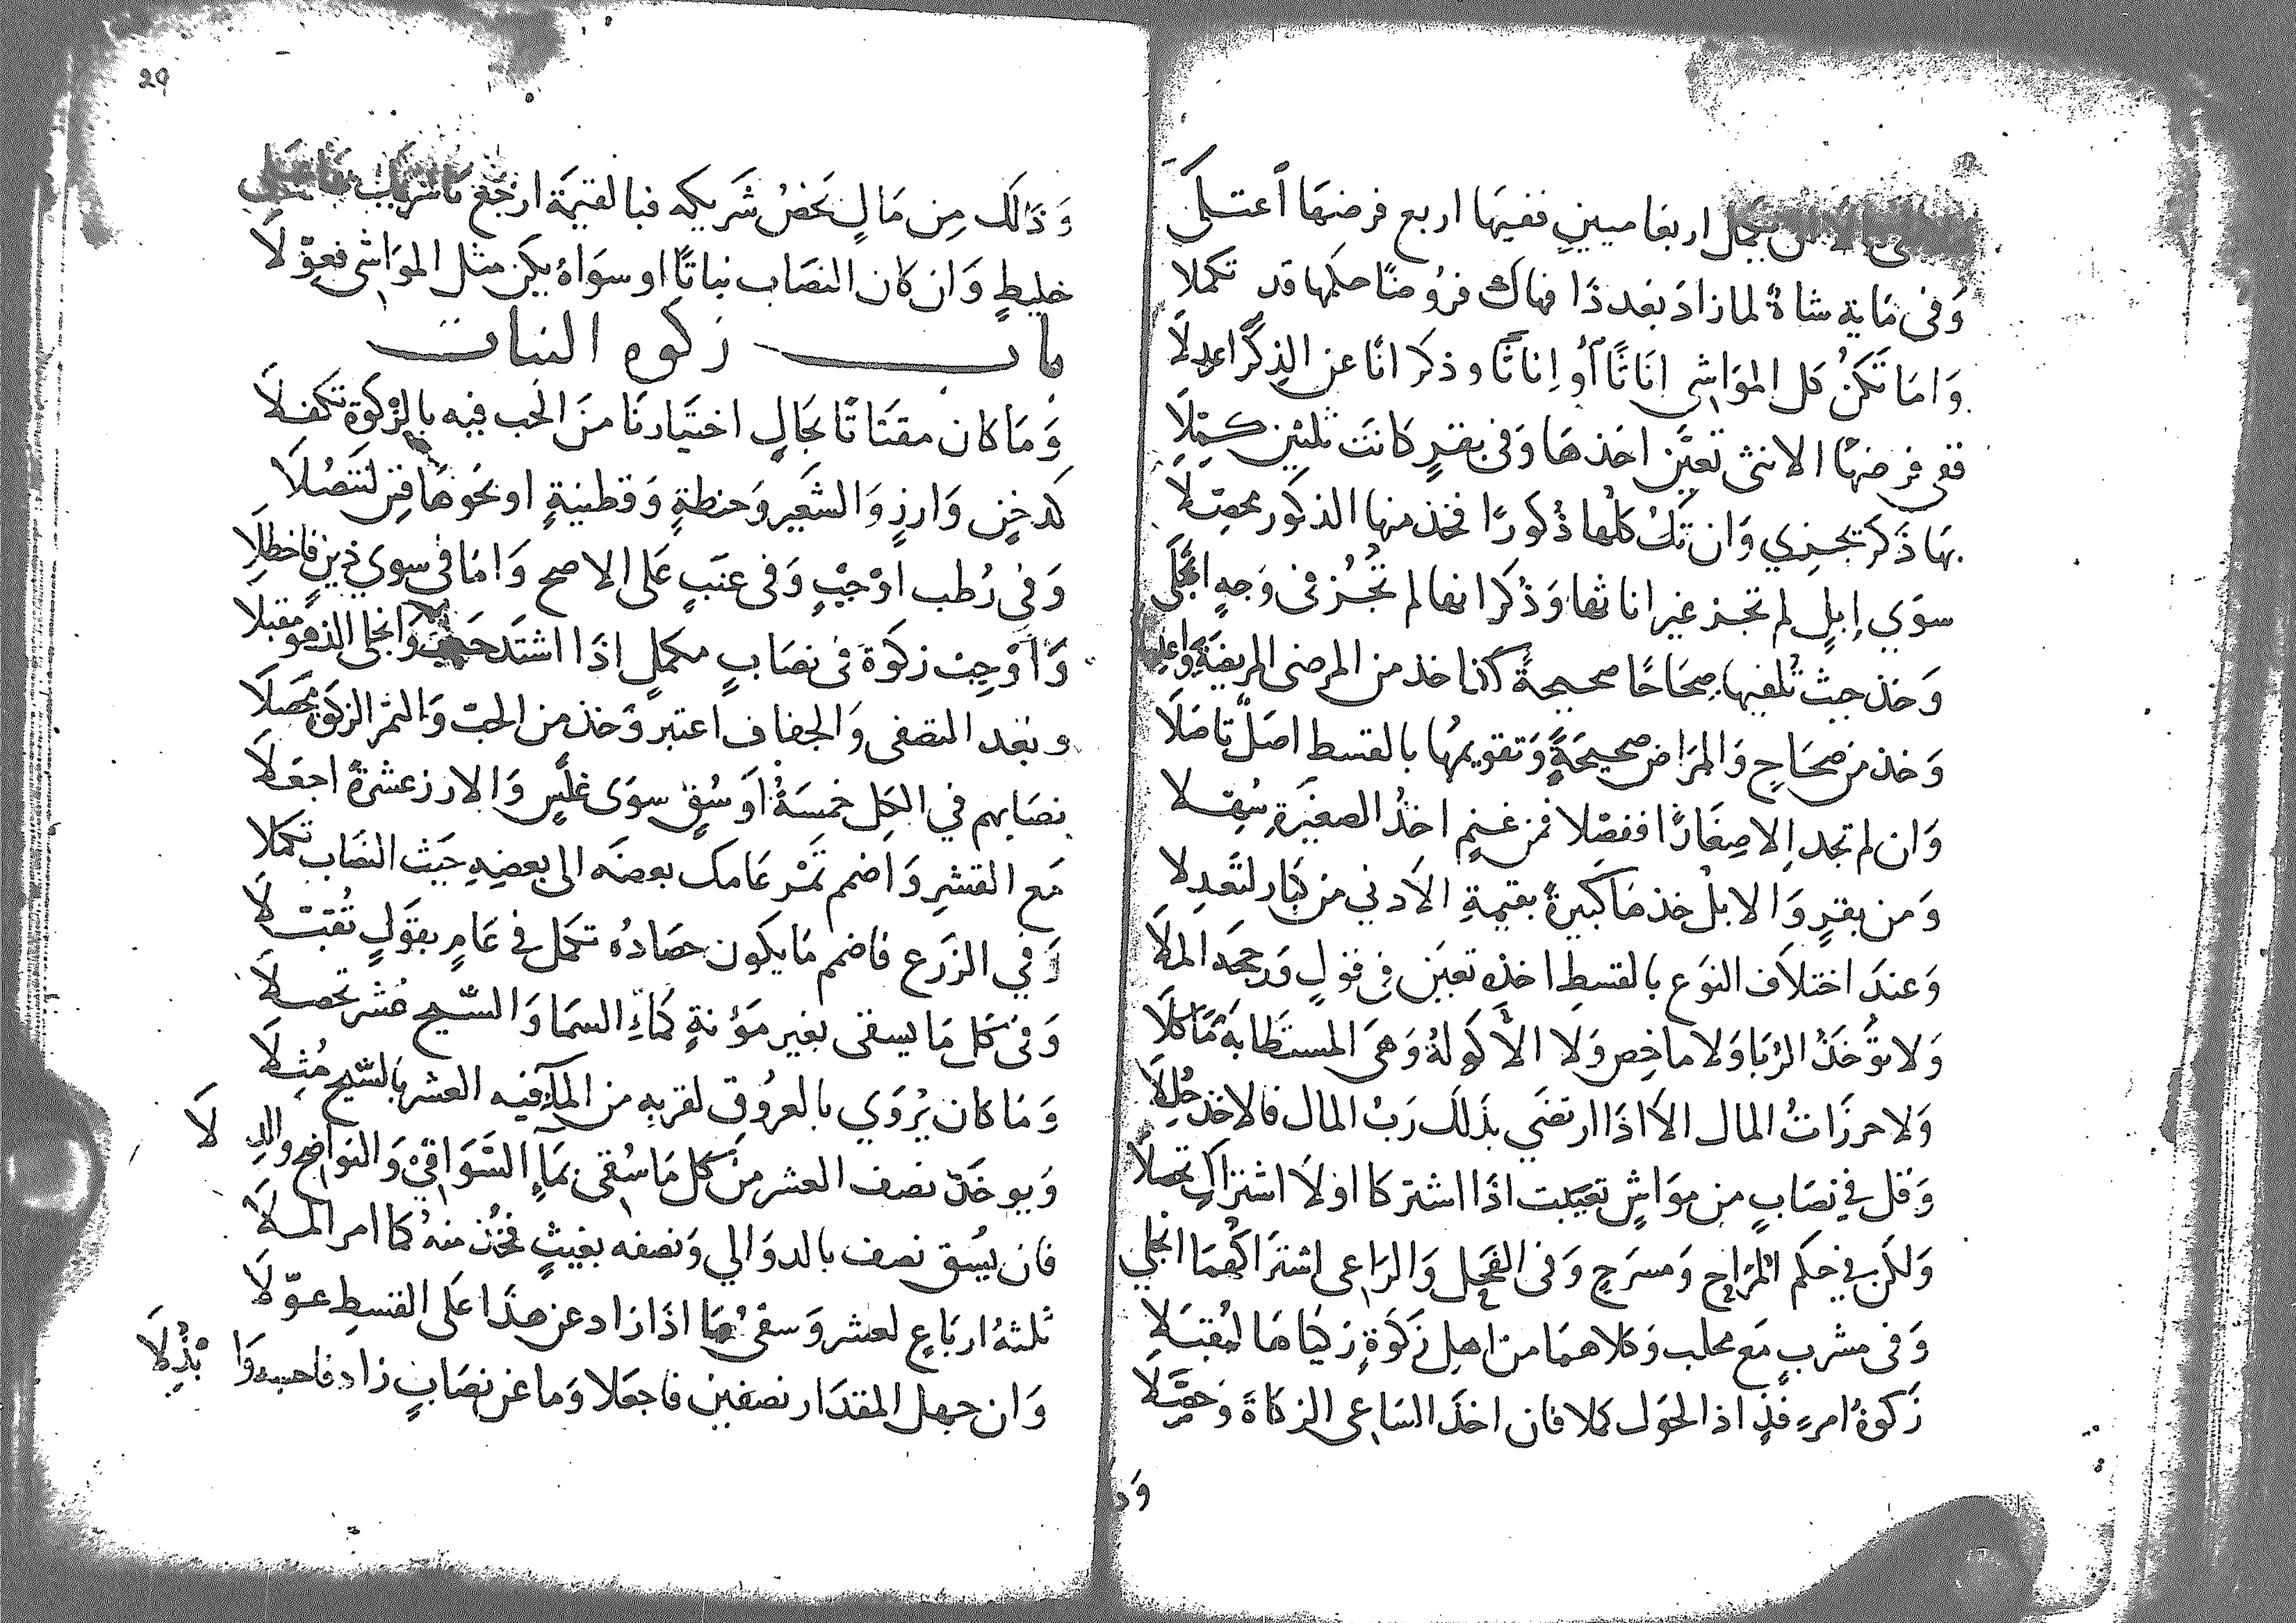 اربعا ميينٍ ففيها اربع فرضها اعتلى
وَفى مَاية شاةٌ لما زادَ بَعد ذا فهاك فرُوضًا حكمها قد تكملا
وَامَا تَكنُ كل الموَاشى انَاثًا أو إناثًا وذكرانًا عن الذكرٍ اعدِلَا
ففى فرضهَا الانثى تعيَّن اخذهَا وَفى بقرٍ كانَت ثلثين كمّلَا
بهَا ذَكر تجزي وَان تَكُ كلُها ذُكورًا فخذ منها الذكور محصّلَا
سوَي إبلٍ لم تجز غير اناثها وَذُكرانها لم تُجُز فى وَجهٍ انجلَى
وَخذ حيث تُلفيها صحَاحًا صحيحةً كذا خذ من المرضى المريضَة
وَخذ من صحَاحٍ وَالمرَاض صحيحَةً وَتقويمهَا بالقسط اصَلٌ تاصَلَا
وَان لم تجد الا صِغَارًا ففصّلا فمن غنمٍ اخذُ الصغيَرة سُهّلا
وَمن بقرٍ وَالابلْ خذهَا كبيَرةً بقيمةِ الاَدني من كبَار لتَعدِلا
وَعندَ اختلاَف النوَع بالقسطِ اخذه تعيَن فى قولٍ وَرجحَه الملَا
وَلا تؤُخذُ الرُبَا وَلا ماخِص وَلا الأكولةُ وَهىَ المستَطابَة مَاكلَا
وَلا حرزَاتُ المال الاَ اذَا ارتضَي بذَلكَ رَبُ المال فالاخذ حُلّلَا
وَقل في نصَابٍ من موَاشٍ تعيَنت اذَا اشتركا اولَا اشترَاك تحصلَا
وَلكن في حكم المُرَاح وَمسرَحٍ وَفى الفحل وَالرَاعى اشترَاكُهمَا انجلي
وَفى مشربٍ مَع محلب وَكلاهمَا من اهل زكَوَةٍ زكيَاهَا لتُقبَلَا
زَكوةُ امرءٍ فَذٍ اذ الحَول كملا فان اخذَ السَاعى الزكاةَ وَحصّلَا
وَذ
29
وَذَالَك مِن مَالٍ يَخصُ شَريكه فبالقيمَة ارجَع
خليطٍ وَان كان النصَاب نباتًا او سوَاهُ يكن مثل الموَاشى فعوّلَا
باب زكوه النبات
وَمَا كان مقتَاتًا بحَالٍ اختيَارنَا منَ الحَب فيه بالزكوَة تكفلَا
كدخنٍ وَارزٍ وَالشعَير وَحنطةٍ وَقطنيَةٍ او نحوَهَا
وَفى رُطب اوْجبْ وَفى عنَبٍ عَلى الاصح وَامَا فى سوي ذينٍ فاخطلَا
وَاوْجِبْ زكوَة فى نصَابٍ مكملٍ اذَا اشتَد حَب وَانجلى الزهو مقبلَا
وبَعد التصفى وَالجفاف اعتبر وَخذ من الحَب وَالتمْر الزكوة محصلَا
نصَابهم في الكل خمسَةُ اوسُقٍ سوَى عَلَسٍ وَالارز عشرةً اجعَلَا
مَع القشرِ وَاضمم تَمْر عَامك بعضَه الى بعضهِ حيَث النصَاب تكملا
وَفي الزَرع فاضمم مَا يكون حصَادُه تكمل فى عَامٍ بقوَلٍ تُقبّلَا
وَفى كل مَا يسقى بغير مَؤنةٍ كماءِ السمَا وَالسّيح عُشر تحصلَا
وَمَا كان يُروَي بالعرُوق لقربهِ من المآءِ فيه العشر بالسّيح مُثلَا
وَيوخَذ نصف العشر من كل مَا سُقى بمَاءِ السَّوَاقيْ وَالنوَاضح والدلَا
فان يُسق نصف بالدوَالي وَنصفه بغيثٍ فخُذ منهُ كما امر الملَا
ثلثةُ اربَاعٍ لعشر وَسقىُهَا اذَا زاد عن هذَا عَلى القسطِ عوّلَا
وَان جهل المقدَار نصفين فاجعَلا وَما عن نصَابٍ زاد فاحسبه وَابْذُلَا